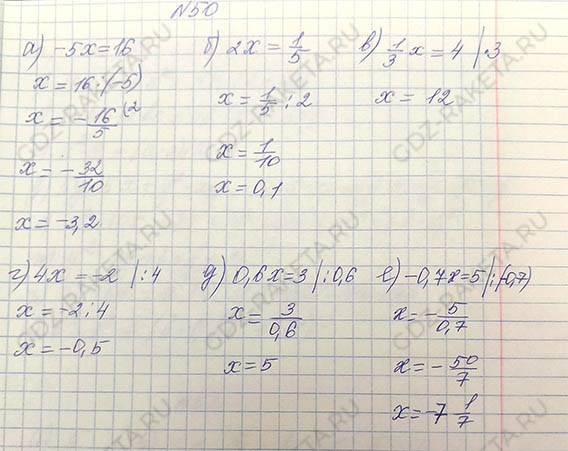 №50
а) -5x=16
x=16:(-5)
x=-16/5 (2
x=-32/10
x=-3,2
б) 2x=1/5
x=1/5:2
x=1/10
x=0,1
в) 1/3 x=4 |·3
x=12
г) 4x=-2 |:4
x=-2:4
x=-0,5
д) 0,6x=3 |:0,6
x=3/0,6
x=5
е) -0,7x=5 |:(-0,7)
x=-5/0,7
x=-50/7
x=-7 1/7
GDZ-RAKETA.RU